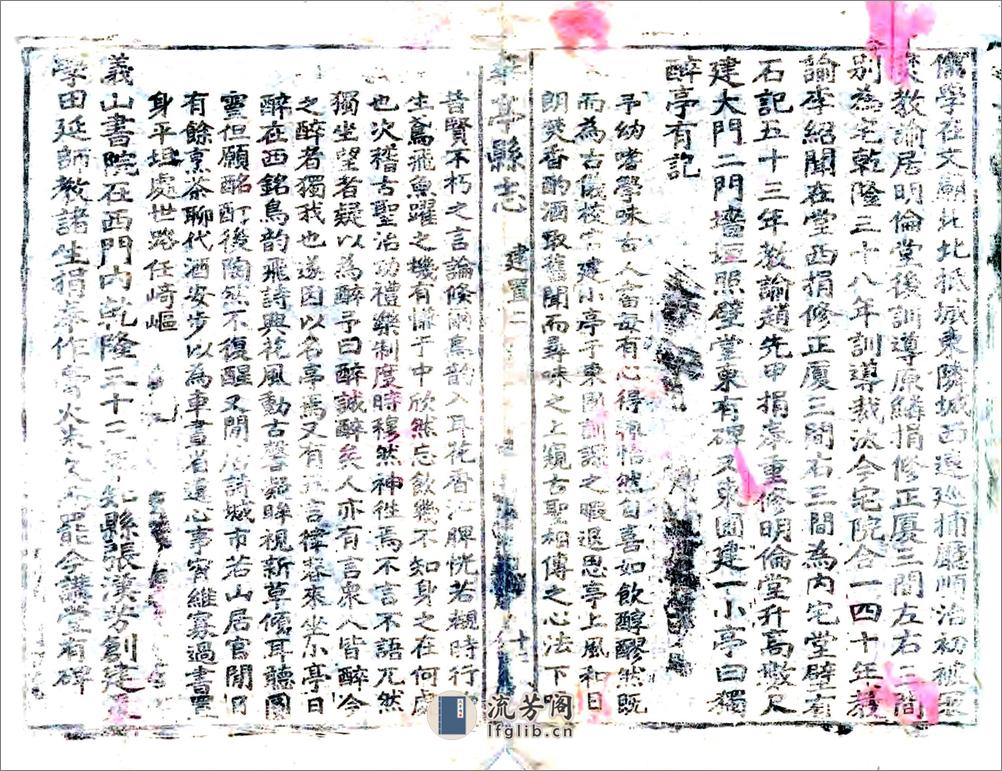 儒學在文廟北北抵城東隣城西邊巡捕廳順治初被
教諭居明倫堂後訓導原鱗捐修正廈三間左右二間
別為宅乾隆三十八年訓導裁汰今宅院合一四十年教
諭李紹聞在堂西捐修正廈三間右三間為內宅堂壁有
石記五十三年教諭趙先甲捐奉重修明倫堂升高數尺
建大門二門墻垣照壁堂東有碑又東園建一小亭曰獨
醉亭有記
予幼嗜學味古人書每有心得輒怡然自喜如飲醇醪然既
而為古儀校官建小亭于東園訓課之暇退思亭上風和日
朗焚香酌酒取舊聞而尋味之上窺古聖相傳之心法下
華亭縣志
建置二
十二
昔賢不朽之言論倏 鳥韵入耳花香 脾恍若覩時行
生鳶飛魚躍之機有慊于中欣然忘飲幾不知身之在何處
也次稽古聖治功禮樂制度時穆然神徃焉不言不語兀然
獨坐望者疑以為醉予曰醉誠醉矣人亦有言眾人皆醉今
之醉者獨我也遂因以名亭焉又有 言律春來坐小亭日
醉在西銘鳥韵飛詩興花風動古馨凝眸視新草傾耳聽園
靈但願酩酊後陶然不復醒又閒居請城市若山居官閒日
有餘烹茶聊代酒安步以為車書省遺心事宵維寡過書置
身平坦處世路任崎嶇
義山書院在西門內乾隆三十 知縣張漢芳創建
學田延師教諸生捐奉作膏火未久 罷今講堂有碑
流芳閣
lfglib.cn